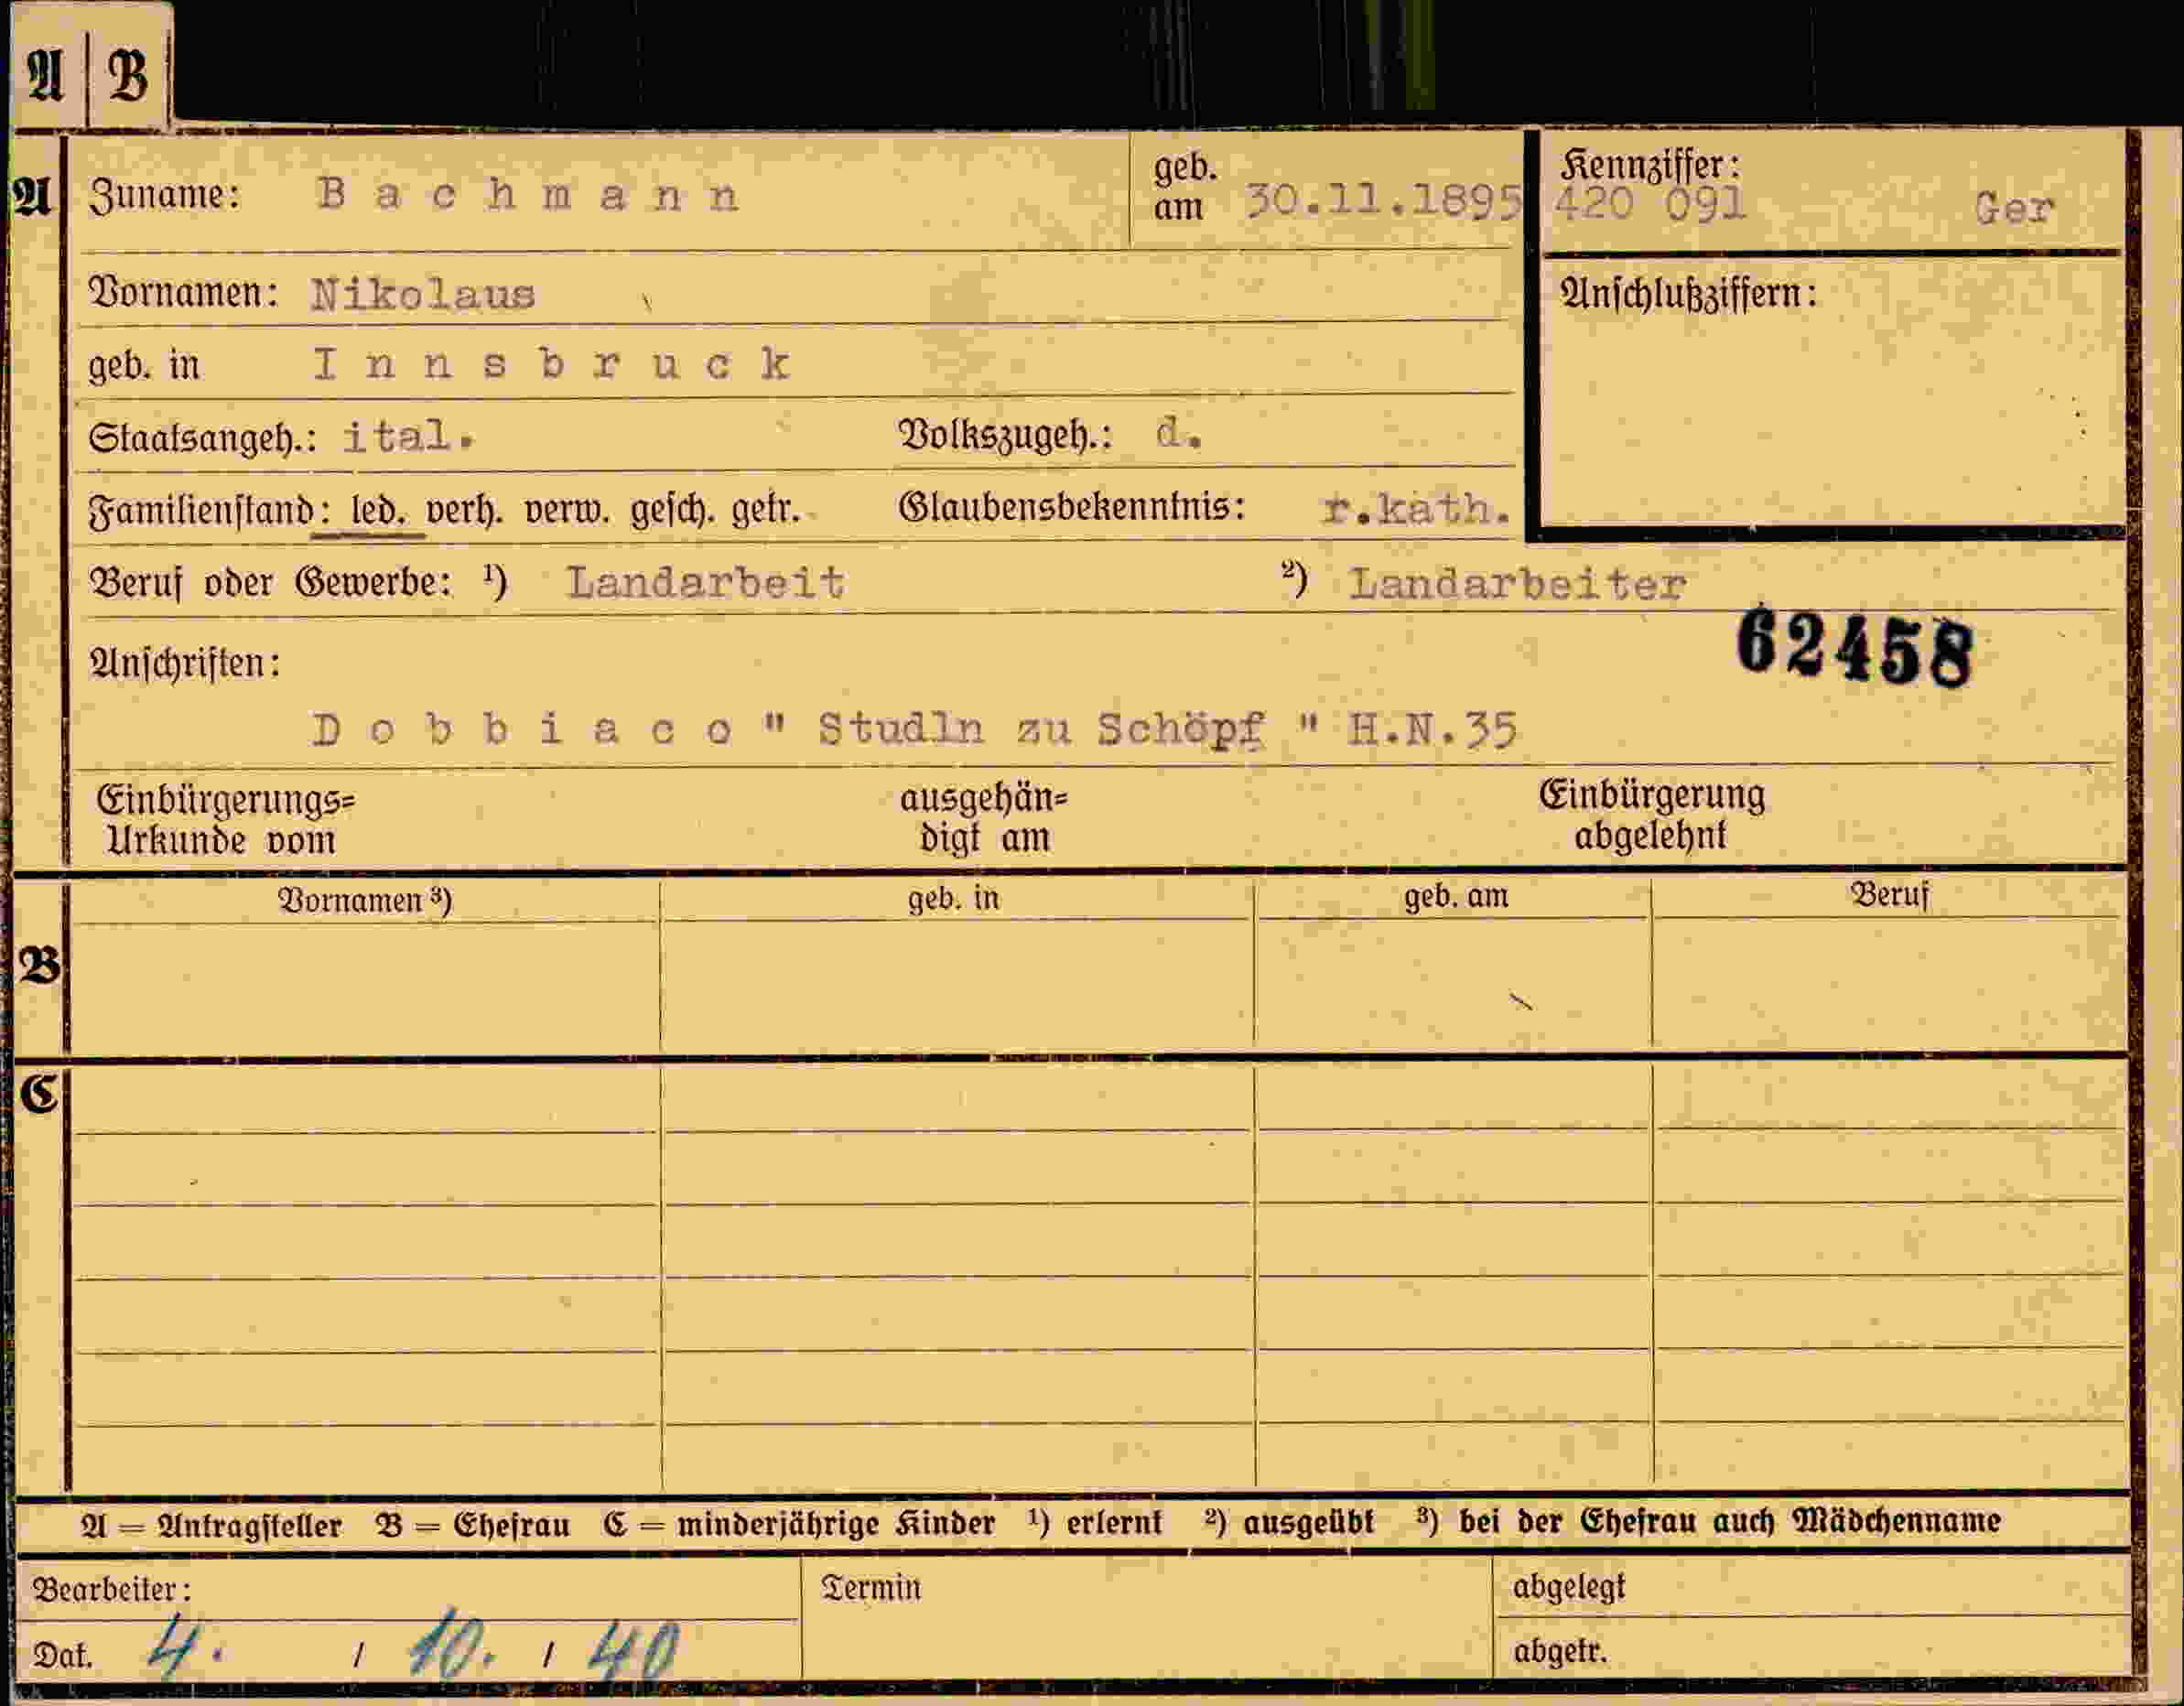 A B
A Zuname: B a c h m a n n geb. am 30.11.1895 Kennziffer: 420 091 Ger
Vornamen: Nikolaus Anschlußziffern:
geb. in I n n s b r u c k
Staatsangeh.: ital. Volkszugeh.: d.
Familienstand: led. verh. verw. gesch. getr. Glaubensbekenntnis: r.kath.
Beruf oder Gewerbe: ¹) Landarbeit ²) Landarbeiter
62458
Anschriften:
D o b b i a c o " Studln zu Schöpf " H.N.35
Einbürgerungs= ausgehän= Einbürgerung
Urkunde vom digt am abgelehnt
Vornamen ³) geb. in geb. am Beruf
B
C
A = Antragsteller B = Ehefrau C = minderjährige Kinder ¹) erlernt ²) ausgeübt ³) bei der Ehefrau auch Mädchenname
Bearbeiter: Termin abgelegt
Dat. 4. / 10. / 40 abgetr.